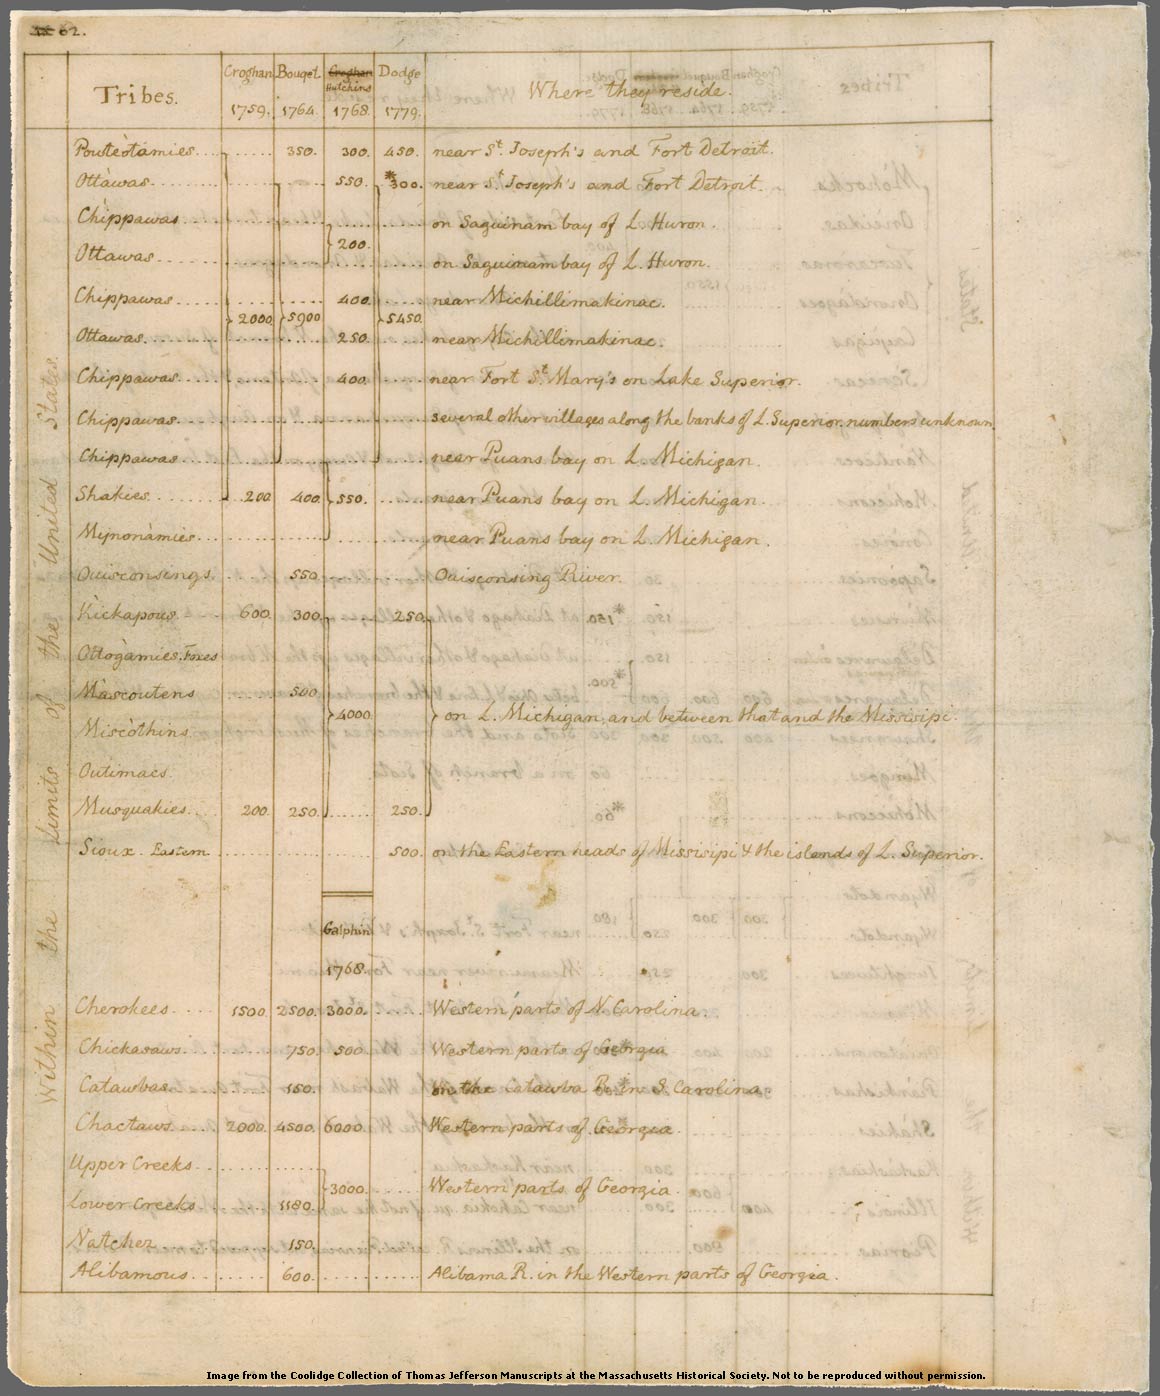 62.
Tribes. Croghan 1759. Bouqet 1764. Croghan Hutchins 1768. Dodge 1779. Where they reside.
Within the Limits of the United States.
Pouteòtamies.... ...... 350. 300. 450. near St. Joseph's and Fort Detroit.
Ottàwas......... 550. *300. near St. Joseph's and Fort Detroit.
Chìppawas....... on Saguinam bay of L. Huron.
200.
Ottawas......... on Saguinam bay of L. Huron.
Chippawas..... 400. near Michillimakinac.
2000. 5900 5450.
Ottawas......... 250. near Michillimakinac.
Chippawas..... 400. near Fort St. Mary's on Lake Superior.
Chippawas..... several other villages along the banks of L. Superior. numbers unknown
Chippawas..... near Puans bay on L. Michigan.
Shakies........ 200 400. 550. near Puans bay on L. Michigan.
Mynonàmies... near Puans bay on L. Michigan.
Ouisconsings. 550. Ouisconsing River.
Kickapous. 600. 300. 250.
Ottogamies. Foxes
Màscoutens 500.
4000. on L. Michigan, and between that and the Missisipi.
Miscòthins.
Outimacs.
Musquakies. 200. 250. 250.
Sioux. Eastern 500. on the Eastern heads of Missisipi & the islands of L. Superior.
Galphin
1768.
Cherokees.... 1500. 2500. 3000. Western parts of N. Carolina.
Chickasaws... 750. 500. Western parts of Georgia
Catawbas. 150. on the Catawba R. in S. Carolina
Chactaws.... 2000. 4500. 6000. Western parts of Georgia.
Upper Creeks..
3000. Western parts of Georgia.
Lower Creeks... 1180.
Natchez 150.
Alibamous... 600. Alibama R. in the Western parts of Georgia.
Image from the Coolidge Collection of Thomas Jefferson Manuscripts at the Massachusetts Historical Society. Not to be reproduced without permission.